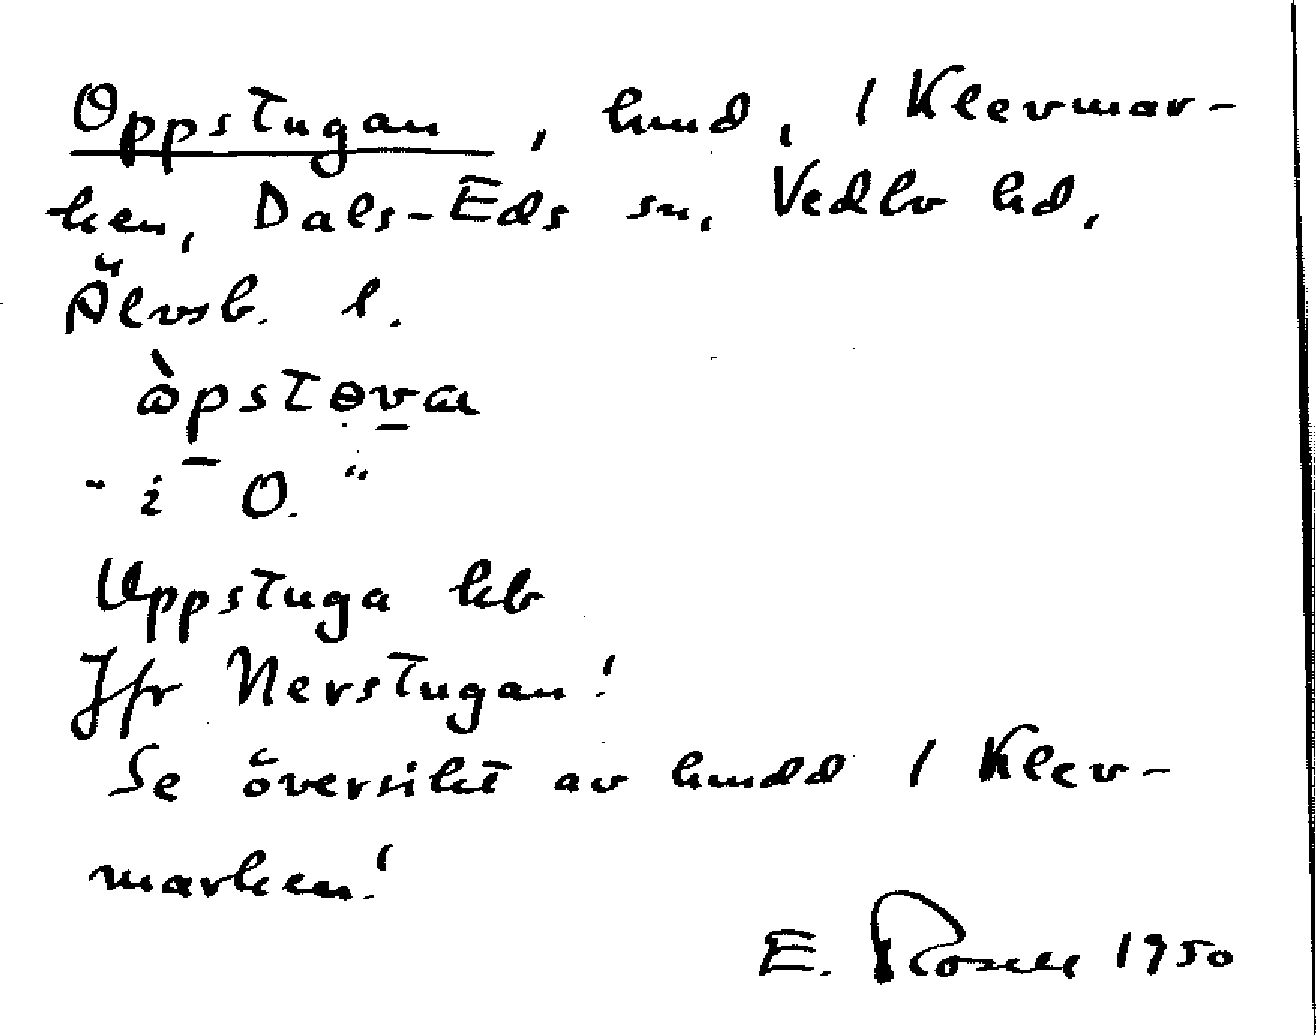 Oppstugan, hmd, i Klevmar-
ken, Dals-Eds sn, Vedbo hd,
Älvsb. l.
òpstɵva
"i O."
Uppstuga kb
Jfr Nerstugan!
Se översikt av hmdd i Klev-
marken!
E. Rosell 1950